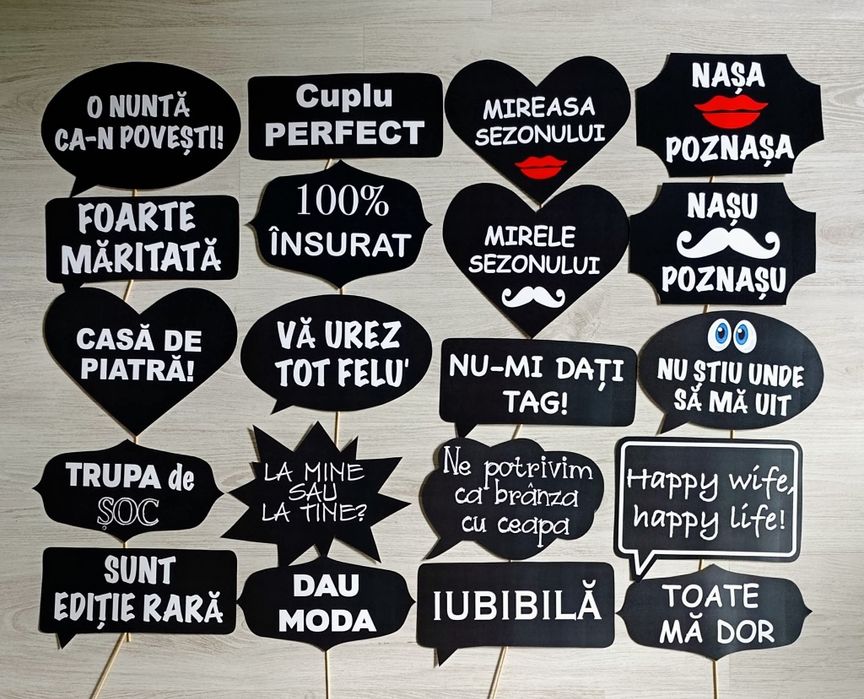 O NUNTĂ
CA-N POVEȘTI!
Cuplu
PERFECT
MIREASA
SEZONULUI
NAȘA
POZNAȘA
FOARTE
MĂRITATĂ
100%
ÎNSURAT
MIRELE
SEZONULUI
NAȘU
POZNAȘU
CASĂ DE
PIATRĂ!
VĂ UREZ
TOT FELU'
NU-MI DAȚI
TAG!
NU ȘTIU UNDE
SĂ MĂ UIT
TRUPA de
ȘOC
LA MINE
SAU
LA TINE?
Ne potrivim
ca brânza
cu ceapa
Happy wife,
happy life!
SUNT
EDIȚIE RARĂ
DAU
MODA
IUBIBILĂ
TOATE
MĂ DOR